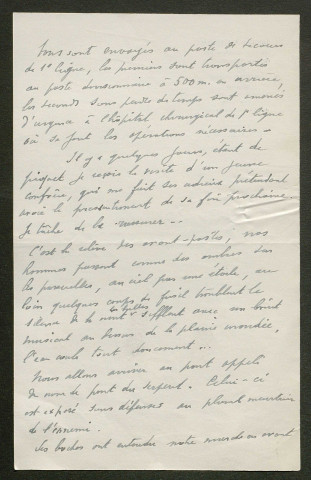 Tous sont envoyés au poste de secours
de 1e ligne, les premiers sont transportés
au poste divisionnaire à 500 m. en arrière,
les seconds sans perte de temps sont amenés
d'urgence à l'hôpital chirurgical de 1e ligne
où se font les opérations nécessaires -
Il y a quelques jours, étant de
piquet je reçois la visite d'un jeune
confrère, qui me fait ses adieux prétendant
avoir le pressentiment de sa fin prochaine
Je tâche de le rassurer --
C'est la relève des avant-postes; nos
hommes passent comme des ombres sur
les passerelles, au ciel pas une étoile, au
loin quelques coups de fusil troublent le
silence de la nuit. les balles sifflent avec un bruit
au dessus de la plaine inondée,
l'eau coule tout doucement...
Nous allons arriver au pont appelé
du nom de pont du Serpent. Celui-ci
est exposé sans défenses au plomb meurtrier
de l'ennemi.
Les boches ont entendu notre marche en avant